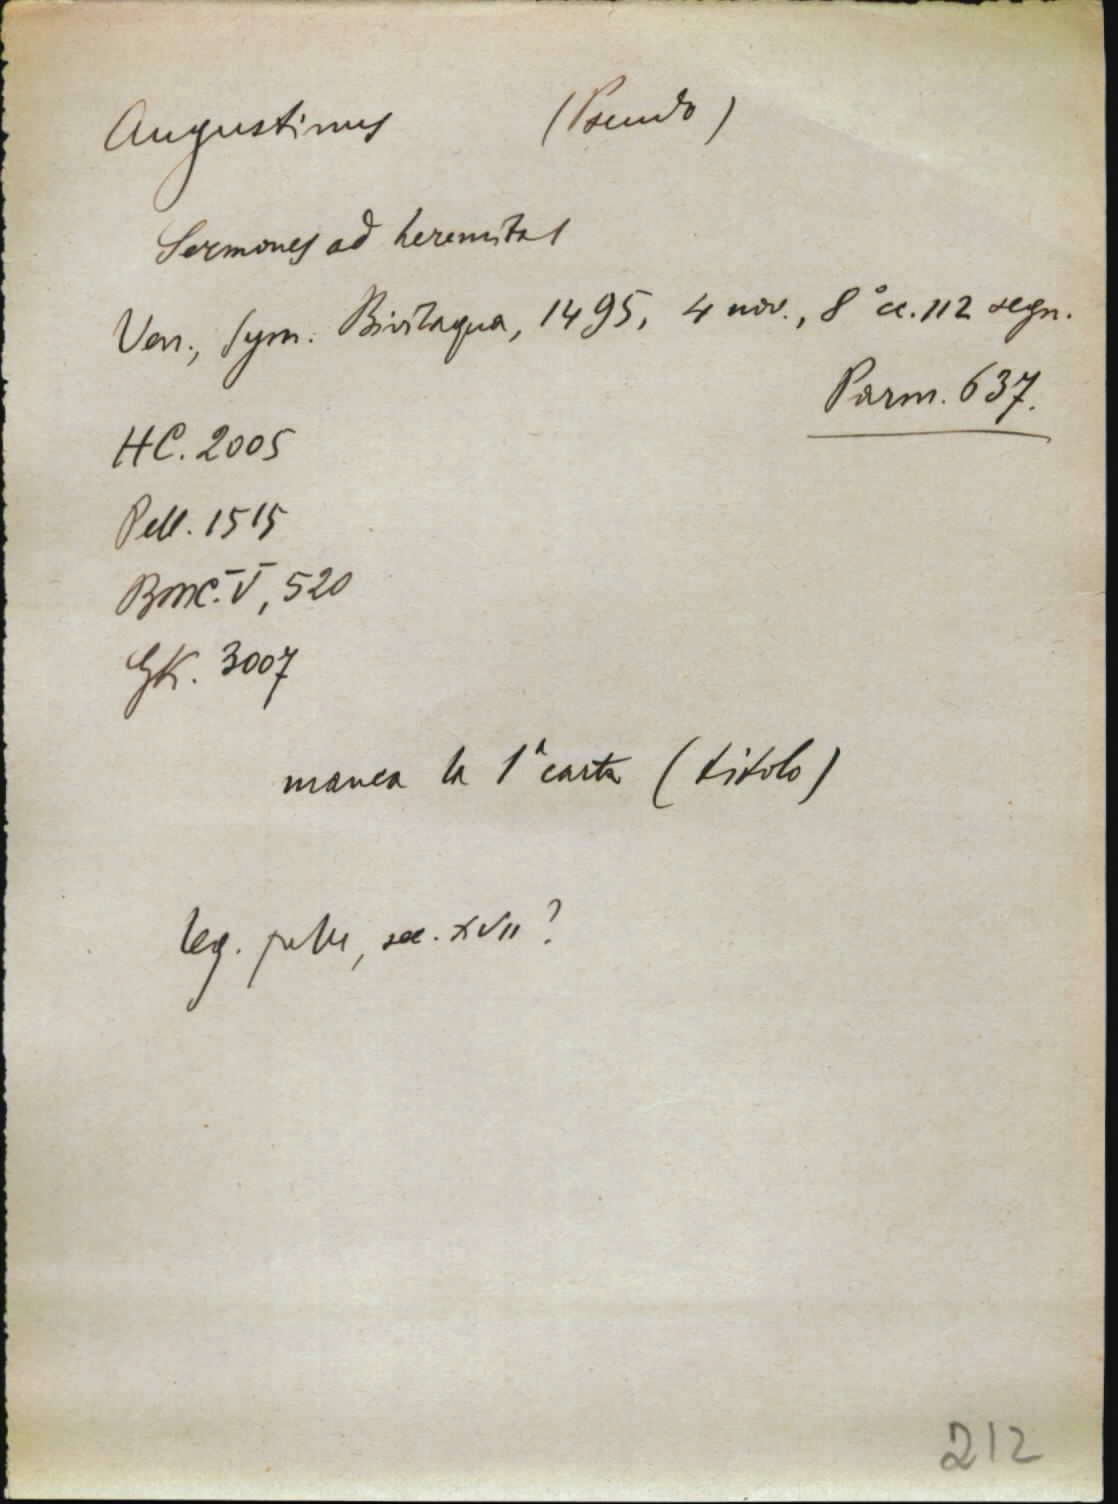 Augustinus (Pseudo)
Sermones ad heremitas
Ven., Sym. Bivilaqua, 1495, 4 nov., 8° cc. 112 segn.
Parm. 637.
HC. 2005
Pell. 1515
BMC. V, 520
GK. 3007
manca la 1ª carta (titolo)
leg. pelle, sec. XVII?
212